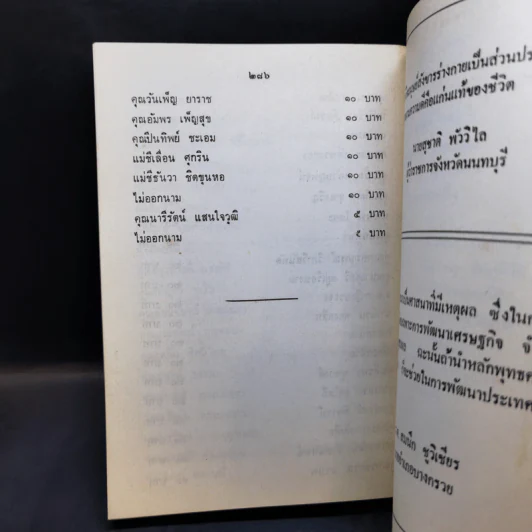 ๒๘๖
คุณวันเพ็ญ ยาราช ๑๐ บาท
คุณอัมพร เพ็ญสุข ๑๐ บาท
คุณปิ่นทิพย์ ชะเอม ๑๐ บาท
แม่ชีเลื่อน ศุกริน ๑๐ บาท
แม่ชีธันวา ชิดขุนหอ ๑๐ บาท
ไม่ออกนาม ๑๐ บาท
คุณนารีรัตน์ แสนใจวุฒิ ๕ บาท
ไม่ออกนาม ๕ บาท
สังขารร่างกายเป็นส่วนประ
ความดีคือแก่นแท้ของชีวิต
นายสุชาติ พัววิไล
ราชการจังหวัดนนทบุรี
ศาสนาที่มีเหตุผล ซึ่งในก
การพัฒนาเศรษฐกิจ
ฉะนั้นถ้านำหลักพุทธศ
จะช่วยในการพัฒนาประเทศ
ชูวิเชียร
อำเภอบางกรวย